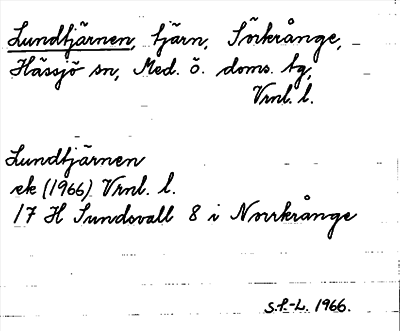 Lundtjärnen, tjärn, Sörkrånge,
Hässjö sn, Med. ö. doms. tg,
Vrnl. l.
Lundtjärnen
ek (1966) Vrnl. l.
17 H Sundsvall 8 i Norrkrånge
S.P.-L. 1966.